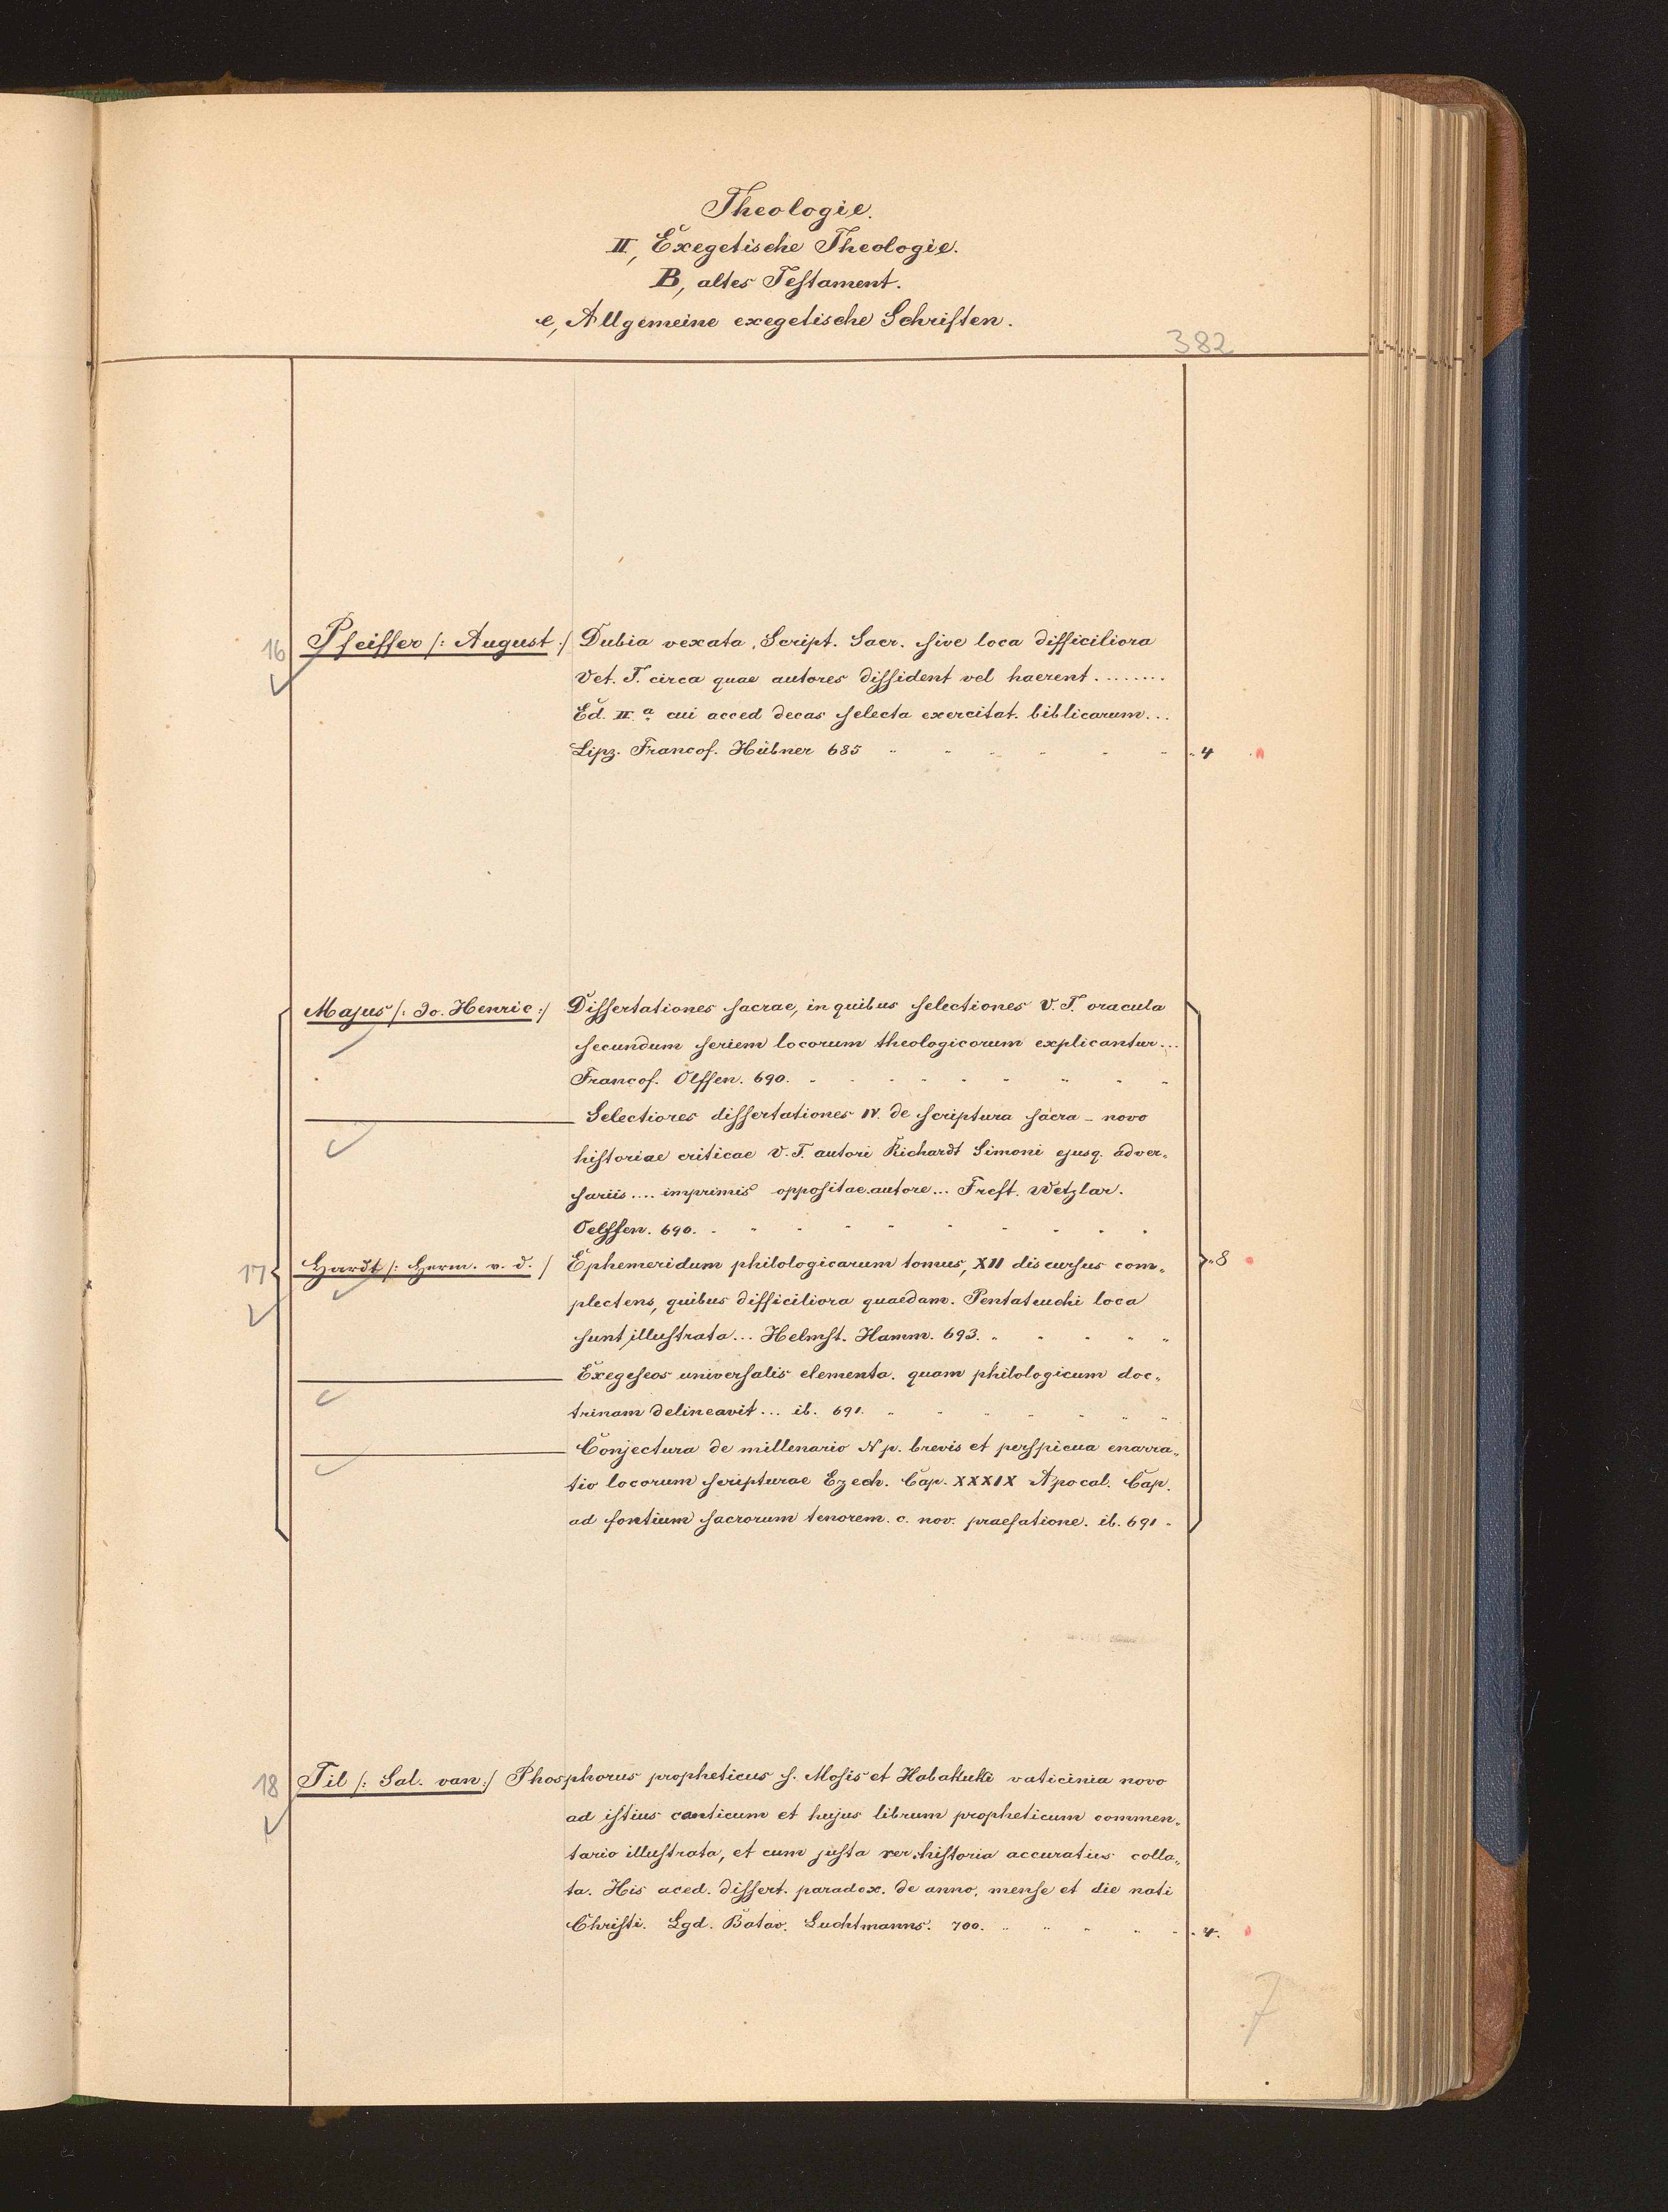 Theologie.
II, Exegetische Theologie.
B, altes Testament.
e, Allgemeine exegetische Schriften.
382
16 Pfeiffer /: August :/ Dubia vexata, Script. Sacr. sive loca difficiliora
Vet. T. circa quae autores dissident vel haerent ........
Ed. II.a cui acced decas selecta exercitat. biblicarum...
Lipz. Francof. Hübner 685 4
Majus /: Jo. Henric :/ Dissertationes sacrae, in quibus selectiones V. T. oracula
secundum seriem locorum theologicorum explicantur...
Francof. Olffen. 690.
Selectiores dissertationes IV. de scriptura sacra – novo
historiae criticae V. T. autori Richardt Simoni ejusq. adver„
sariis.... imprimis oppositae autore... Frcft. Wetzlar.
Oelffen. 690.
17 Hardt /: Herm. v. d. / Ephemeridum philologicarum tomus, XII discursus com„ 8
plectens, quibus difficiliora quaedam. Pentateuchi loca
sunt illustrata... Helmst. Hamm. 693.
Exegeseos universalis elementa. quam philologicum doc„
trinam delineavit... ib. 691.
Conjectura de millenario N p. brevis et perspicua enarra„
tio locorum scripturae Ezech. Cap. XXXIX Apocal. Cap.
ad fontium sacrorum tenorem. c. nov. praefatione. ib. 691
18 Til /: Sal. van :/ Phosphorus propheticus s. Mosis et Habakuki vaticinia novo
ad istius canticum et hujus librum propheticum commen„
tario illustrata, et cum justa rer. historia accuratius colla„
ta. His aced. dissert. paradox. de anno, mense et die nati
Christi. Lgd. Batav. Luchtmanns. 700. 4.
7